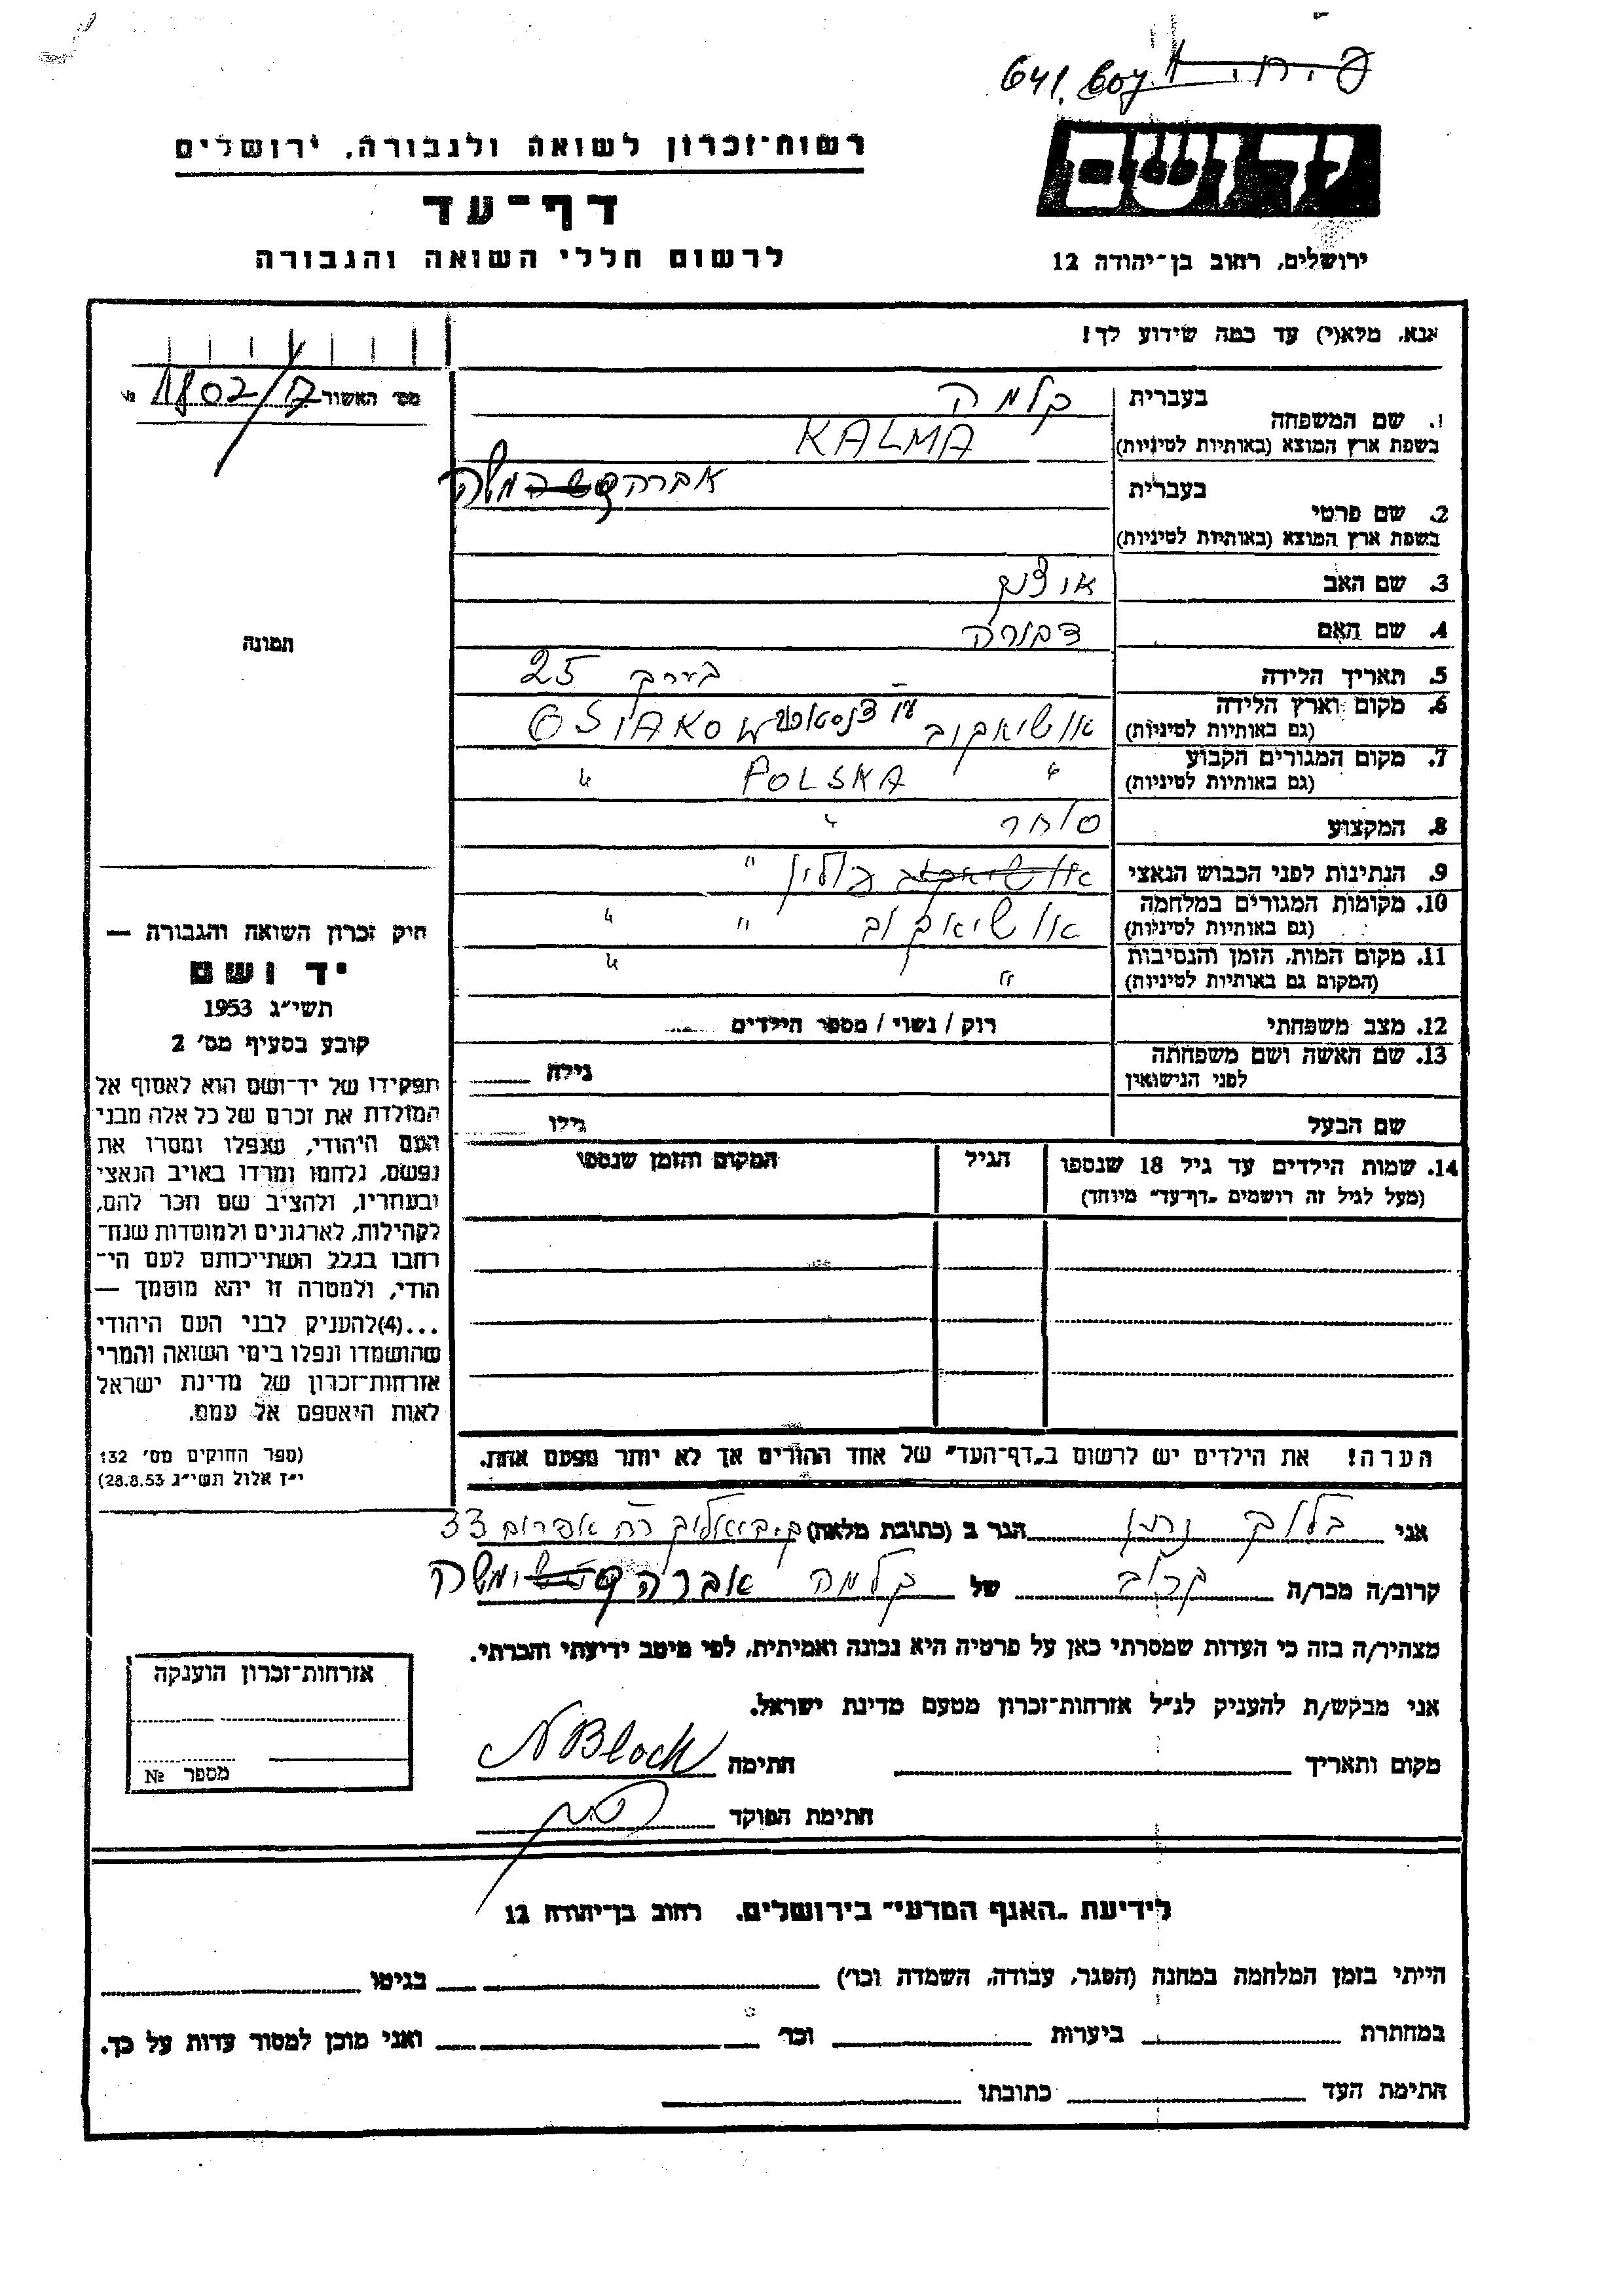 641. 607
יד ושם
רשות-זכרון לשואה ולגבורה, ירושלים
דף-עד
לרשום חללי השואה והגבורה
ירושלים, רחוב בן-יהודה 12
אנא, מלא(י) עד כמה שידוע לך!
מס׳ האשור № 1802/
1. שם המשפחה בעברית קלמה
בשפת ארץ המוצא (באותיות לטיניות) KALMA
2. שם פרטי בעברית אברהם משה
בשפת ארץ המוצא (באותיות לטיניות)
3. שם האב
4. שם האם דבורה
5. תאריך הלידה בערך 25
6. מקום וארץ הלידה (גם באותיות לטיניות) אושיאקוב OSIAKOW
7. מקום המגורים הקבוע (גם באותיות לטיניות) " POLSKA "
8. המקצוע סוחר "
9. הנתינות לפני הכבוש הנאצי פולין "
10. מקומות המגורים במלחמה (גם באותיות לטיניות) אושיאקוב " "
11. מקום המות, הזמן והנסיבות (המקום גם באותיות לטיניות) " "
12. מצב משפחתי רוק / נשוי / מספר הילדים
13. שם האשה ושם משפחתה לפני הנישואין גילה
שם הבעל גילו
14. שמות הילדים עד גיל 18 שנספו (מעל לגיל זה רושמים „דף-עד" מיוחד) הגיל המקום והזמן שנספו
הערה! את הילדים יש לרשום ב„דף-העד" של אחד ההורים אך לא יותר מפעם אחת.
תמונה
חיק זכרון השואה והגבורה —
יד ושם
תשי״ג 1953
קובע בסעיף מס׳ 2
תפקידו של יד-ושם הוא לאסוף אל
המולדת את זכרם של כל אלה מבני
העם היהודי, שנפלו ומסרו את
נפשם, נלחמו ומרדו באויב הנאצי
ובעוזריו, ולהציב שם וזכר להם,
לקהילות, לארגונים ולמוסדות שנח־
רבו בגלל השתייכותם לעם הי־
הודי, ולמטרה זו יהא מוסמך —
...(4)להעניק לבני העם היהודי
שהושמדו ונפלו בימי השואה והמרי
אזרחות-זכרון של מדינת ישראל
לאות היאספם אל עמם.
(ספר החוקים מס׳ 132
י״ז אלול תשי״ג 28.8.53)
אני בלוך נתן הגר ב (כתובת מלאה) ק. ביאליק רח אפרים 33
קרוב/ה מכר/ה קרוב של קלמה אברהם משה
מצהיר/ה בזה כי העדות שמסרתי כאן על פרטיה היא נכונה ואמיתית, לפי מיטב ידיעתי והכרתי.
אני מבקש/ת להעניק לנ״ל אזרחות-זכרון מטעם מדינת ישראל.
מקום ותאריך חתימה N Bloch
חתימת הפוקד
אזרחות-זכרון הוענקה
מספר №
לידיעת „האגף המדעי" בירושלים, רחוב בן-יהודה 12
הייתי בזמן המלחמה במחנה (הסגר, עבודה, השמדה וכו׳) בגיטו
במחתרת ביערות וכו׳ ואני מוכן למסור עדות על כך.
חתימת העד כתובתו